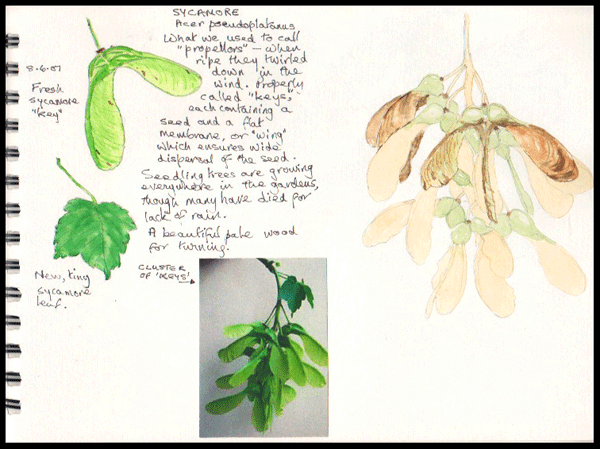 SYCAMORE
Acer pseudoplatanus
What we used to call
"propellors" – when
ripe they twirled
down in the
wind. Properly
called "keys,"
each containing a
seed and a flat
membrane, or "wing"
which ensures wide
dispersal of the seed.
Seedling trees are growing
everywhere in the gardens,
though many have died for
lack of rain.
A beautiful pale wood
for turning.
8.6.01
Fresh
sycamore
"key"
New, tiny
sycamore
leaf.
CLUSTER
OF 'KEYS'